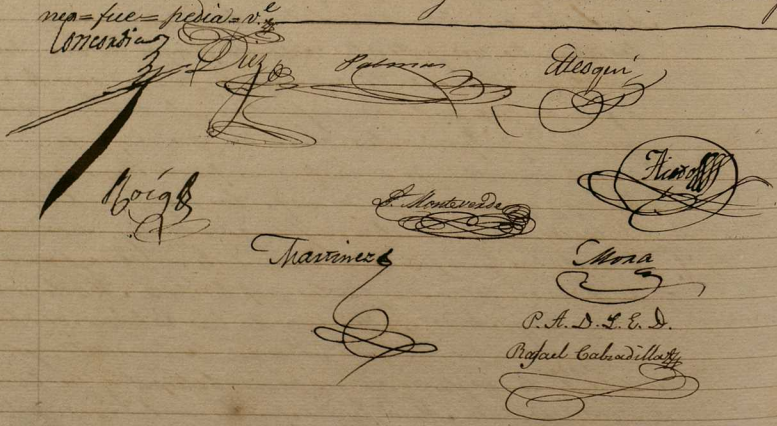 nep=fue=pedia=v.e
Concordia
Diz
Palmas
Roig
J. Monteverde
Martinez
Mora
P. A. D. L. E. D.
Rafael Calzadilla